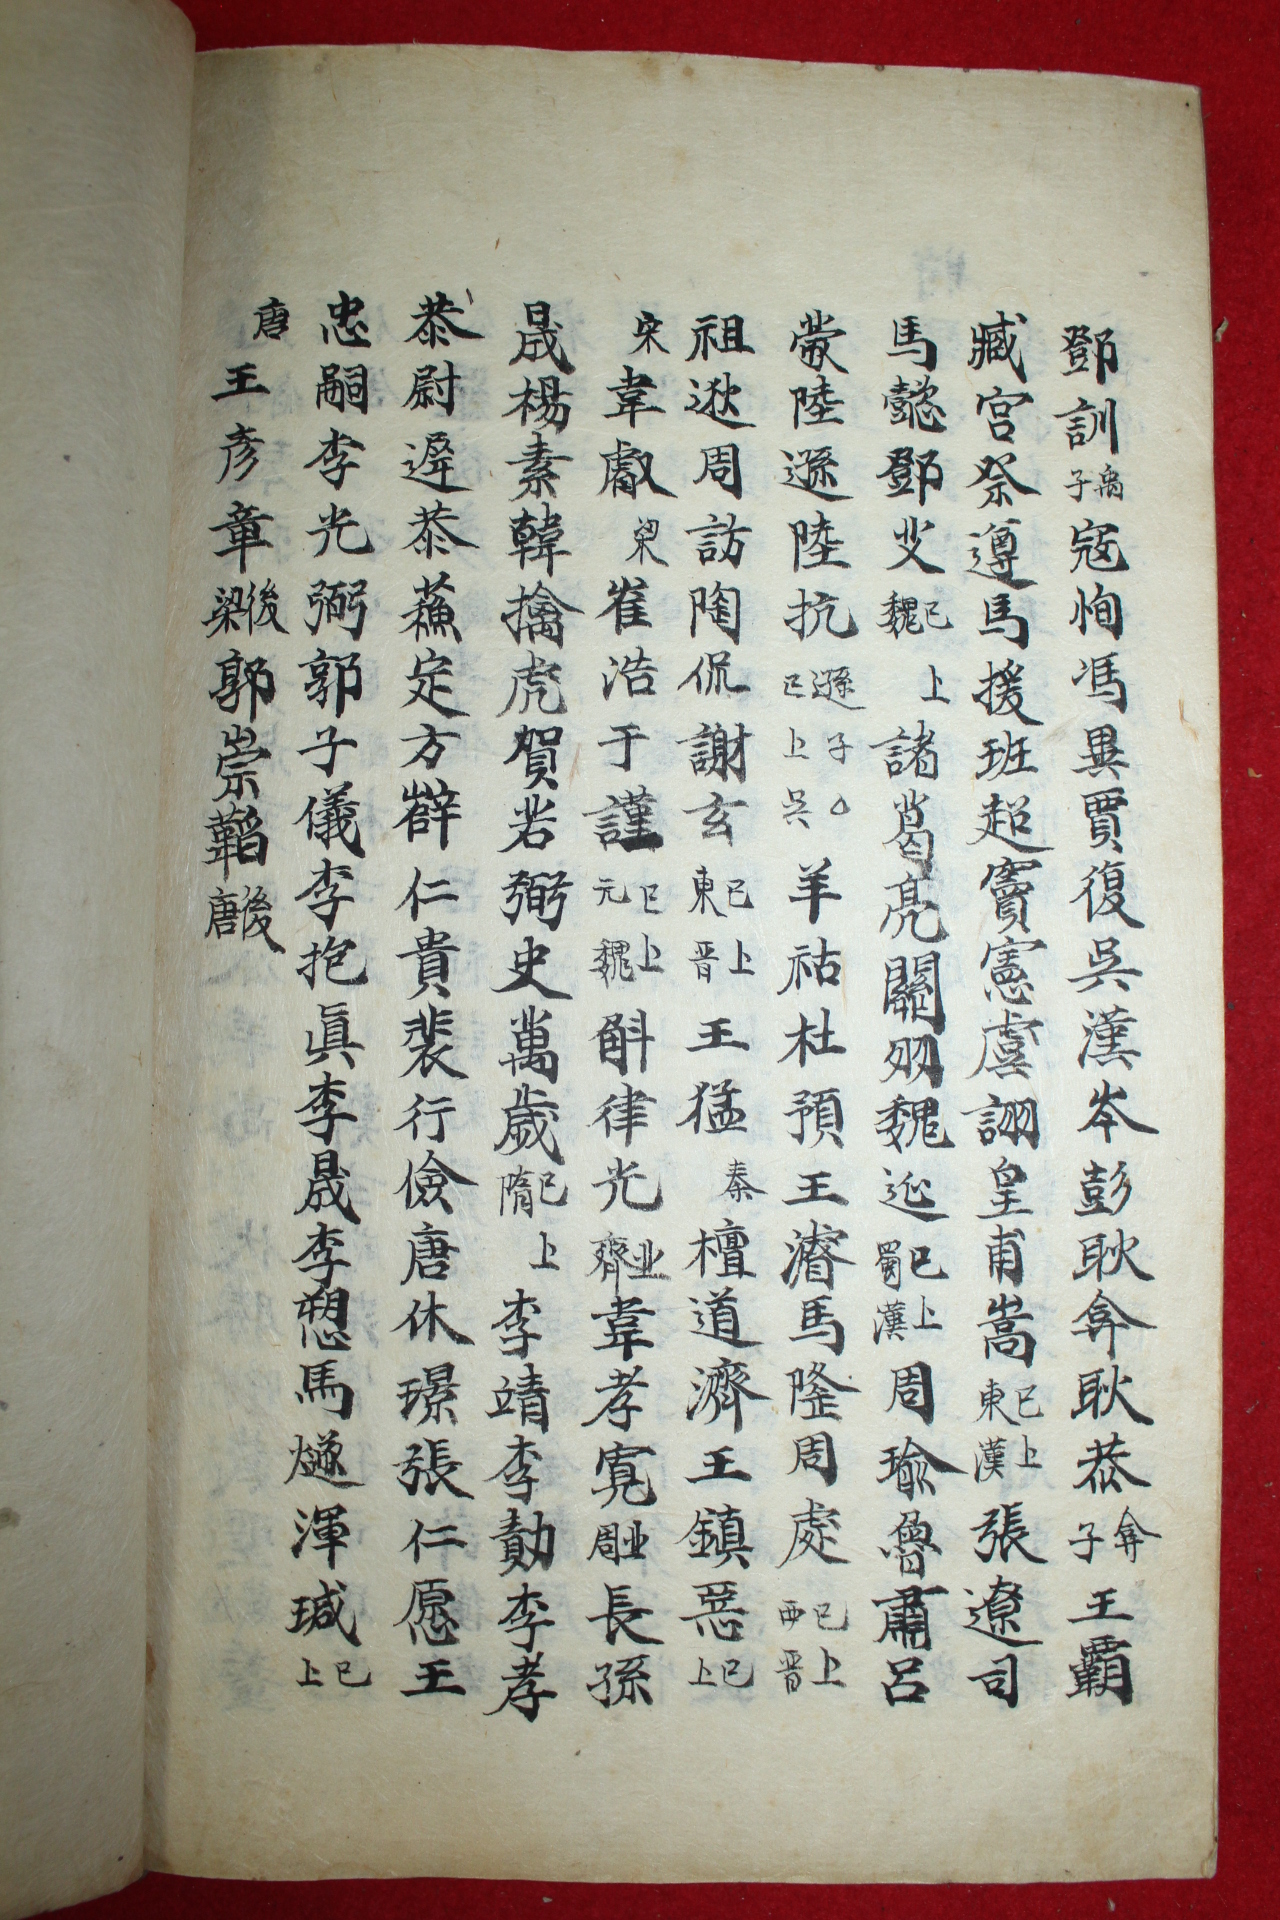 鄧訓禹子寇恂馮異賈復吳漢岑彭耿弇耿恭弇子王霸
臧宮祭遵馬援班超竇憲虞詡皇甫嵩已上東漢張遼司
馬懿鄧艾已上魏諸葛亮關羽魏延已上蜀漢周瑜魯肅呂
蒙陸遜陸抗遜子已上吳羊祜杜預王濬馬隆周處已上西晉
祖逖周訪陶侃謝玄已上東晉王猛秦檀道濟王鎮惡已上
宋韋叡梁崔浩于謹已上元魏斛律光北齊韋孝寬北周長孫
晟楊素韓擒虎賀若弼史萬歲已上隋李靖李勣李孝
恭尉遲恭蘓定方薛仁貴裴行儉唐休璟張仁愿王
忠嗣李光弼郭子儀李抱眞李晟李愬馬燧渾瑊已上
唐王彦章後梁郭崇韜後唐